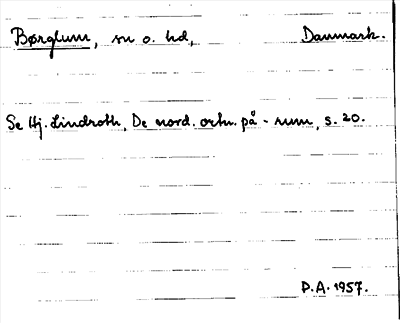 Børglum, sn o. hd, Danmark.
Se Hj. Lindroth, De nord. ortn. på -um, s. 20.
P.A. 1957.